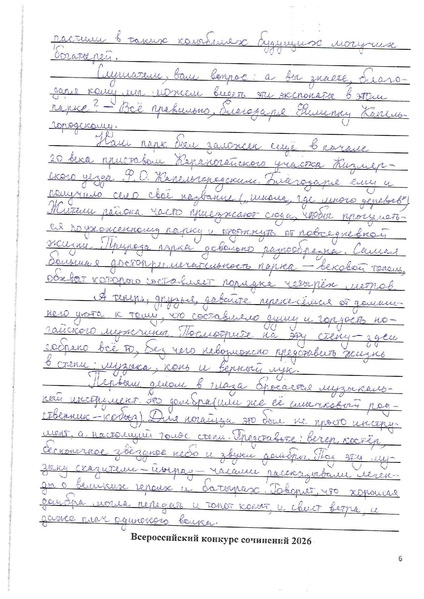 растили в таких колыбелях будущих могучих
богатырей.
Слушатели, вам вопрос: а вы знаете, благо-
даря кому мы можем видеть эти экспонаты в этом
парке? Всё правильно, благодаря Филиппу Капель-
городскому.
Наш парк был заложен ещё в начале
20 века приставом Караногайского участка Кизляр-
ского уезда Ф.О. Капельгородским. Благодаря ему и
получило село своё название (, где много деревьев").
Жители района часто приезжают сюда, чтобы прогулять-
ся по ухоженному парку и отдохнуть от повседневной
жизни. Природа парка довольно разнообразна. Самая
большая достопримечательность парка – вековой тополь,
обхват которого составляет порядка четырёх метров.
А теперь, друзья, давайте перенесёмся от домаш-
него уюта к тому, что составляло душу и гордость но-
гайского мужчины. Посмотрите на эту стену – здесь
собрано всё то, без чего невозможно представить жизнь
в степи: музыка, конь и верный лук.
Первым делом в глаза бросается музыкаль-
ный инструмент. Это домбра (или же её смычковый род-
ственник – кобыз). Для ногайца это был не просто инстру-
мент, а настоящий голос степи. Представьте: вечер, костёр,
бесконечное звёздное небо и звуки домбры. Под эту му-
зыку сказители – йырау – часами рассказывали леген-
ды о великих героях и батырах. Говорят, что хорошая
домбра могла передать и топот копыт, и свист ветра, и
даже плач одинокого волка.
Всероссийский конкурс сочинений 2026
6